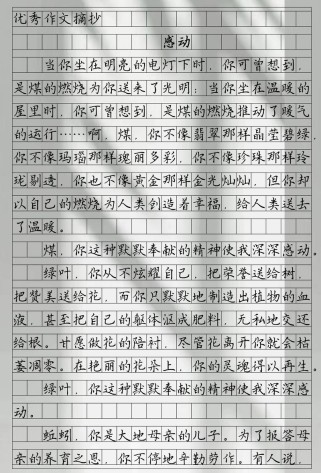 优秀作文摘抄
感动
当你坐在明亮的电灯下时，你可曾想到，
是煤的燃烧为你送来了光明；当你坐在温暖的
屋里时，你可曾想到，是煤的燃烧推动了暖气
的运行……啊，煤，你不像翡翠那样晶莹碧绿，
你不像玛瑙那样瑰丽多彩，你不像珍珠那样玲
珑剔透，你也不像黄金那样金光灿灿，但你却
以自己的燃烧为人类创造着幸福，给人类送去
了温暖。
煤，你这种默默奉献的精神使我深深感动。
绿叶，你从不炫耀自己，把荣誉送给树，
把赞美送给花，而你只默默地制造出植物的血
液，甚至把自己的躯体沤成肥料，无私地交还
给根。甘愿做花的陪衬，尽管花离开你就会枯
萎凋零。在艳丽的花朵上，你的灵魂得以再生。
绿叶，你这种默默奉献的精神使我深深感
动。
蚯蚓，你是大地母亲的儿子。为了报答母
亲的养育之恩，你不停地辛勤劳作。有人说，